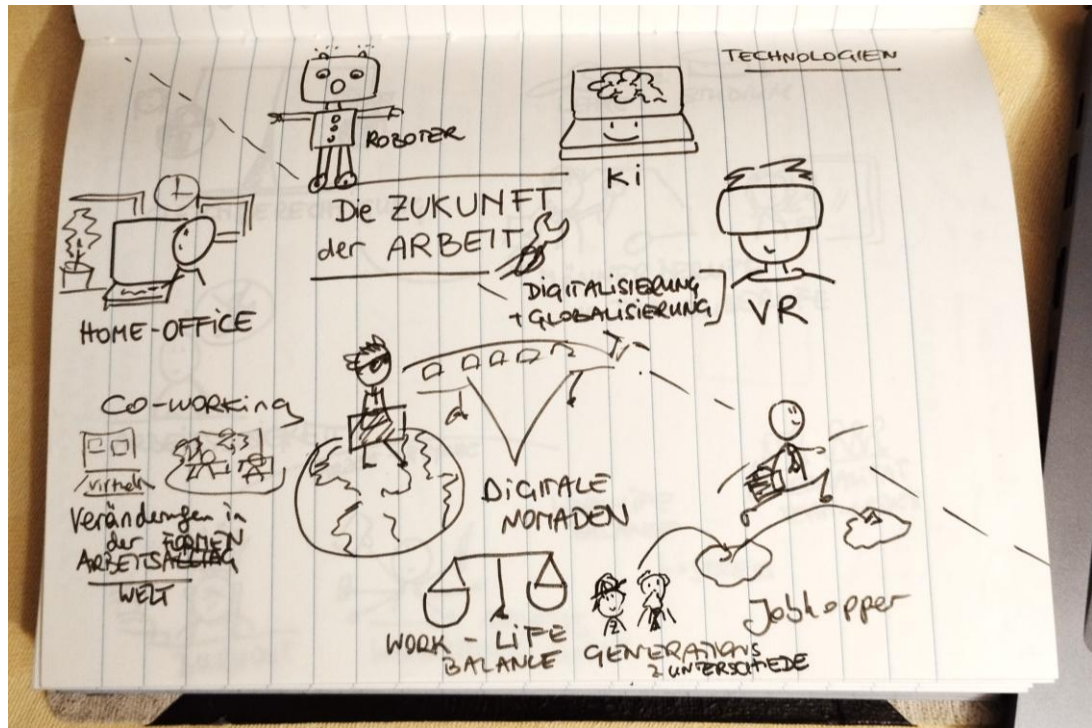 TECHNOLOGIEN
ROBOTER
Ki
Die ZUKUNFT
der ARBEIT
DIGITALISIERUNG
+ GLOBALISIERUNG
VR
HOME-OFFiCE
CO-WORKing
virtuell
Veränderungen in
der FORMEN
ARBEITSALLTAG
WELT
DiGiTALE
NOMADEN
WORK - LiFE
BALANCE
GENERATIONS
UNTERSCHIEDE
Jobhopper